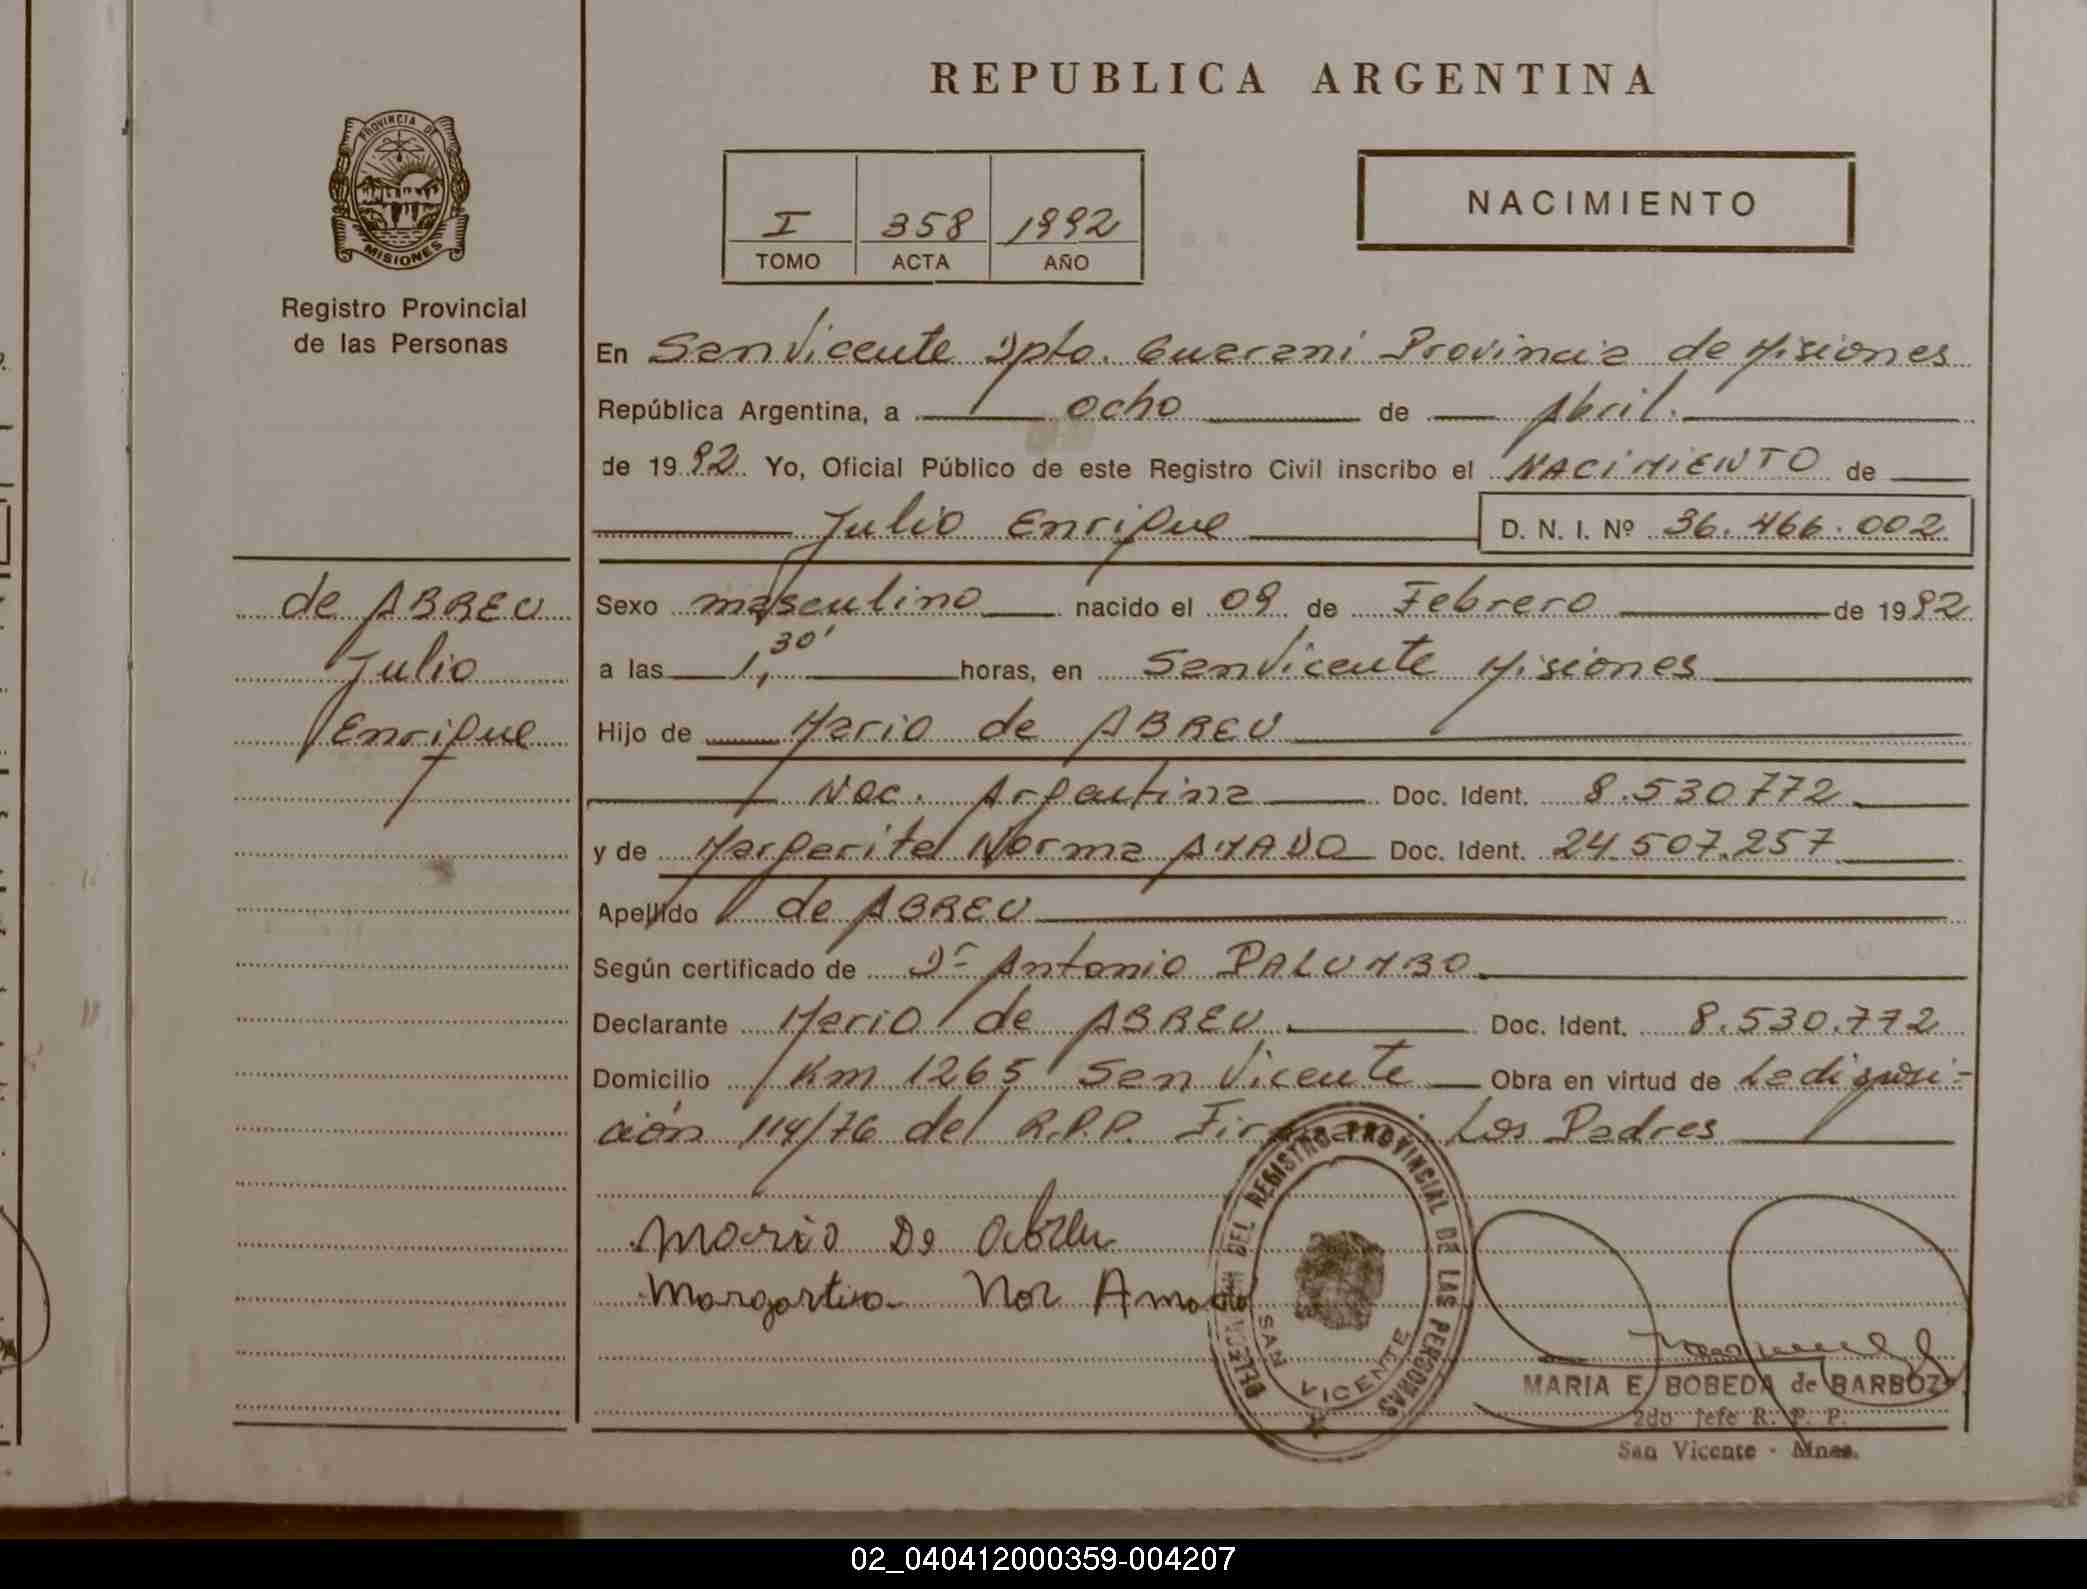 REPUBLICA ARGENTINA
PROVINCIA DE
MISIONES
Registro Provincial
de las Personas
I 358 1992
TOMO ACTA AÑO
NACIMIENTO
En San Vicente Dpto. Guarani Provincia de Misiones
República Argentina, a ocho de Abril.
de 1992 Yo, Oficial Público de este Registro Civil inscribo el NACIMIENTO de
Julio Enrique D. N. I. Nº 36.466.002
de ABREU
Julio
Enrique
Sexo masculino nacido el 09 de Febrero de 1992
a las 1,30' horas, en San Vicente Misiones
Hijo de Mario de ABREU
Nac. Argentina Doc. Ident. 8.530772
y de Margarita Norma AMADO Doc. Ident. 24.507.257
Apellido de ABREU
Según certificado de Dr Antonio PALUMBO
Declarante Mario de ABREU Doc. Ident. 8.530.772
Domicilio Km 1265 San Vicente Obra en virtud de La disposi-
ción 114/76 del R.P.P. Firman: Los Padres
Mario De Abreu
Margartia Nor Amado
DELEGACION DEL REGISTRO PROVINCIAL DE LAS PERSONAS
SAN VICENTE
MARIA E. BOBEDA de BARBOZA
2do Jefe R. P. P.
San Vicente - Mnes.
02_040412000359-004207